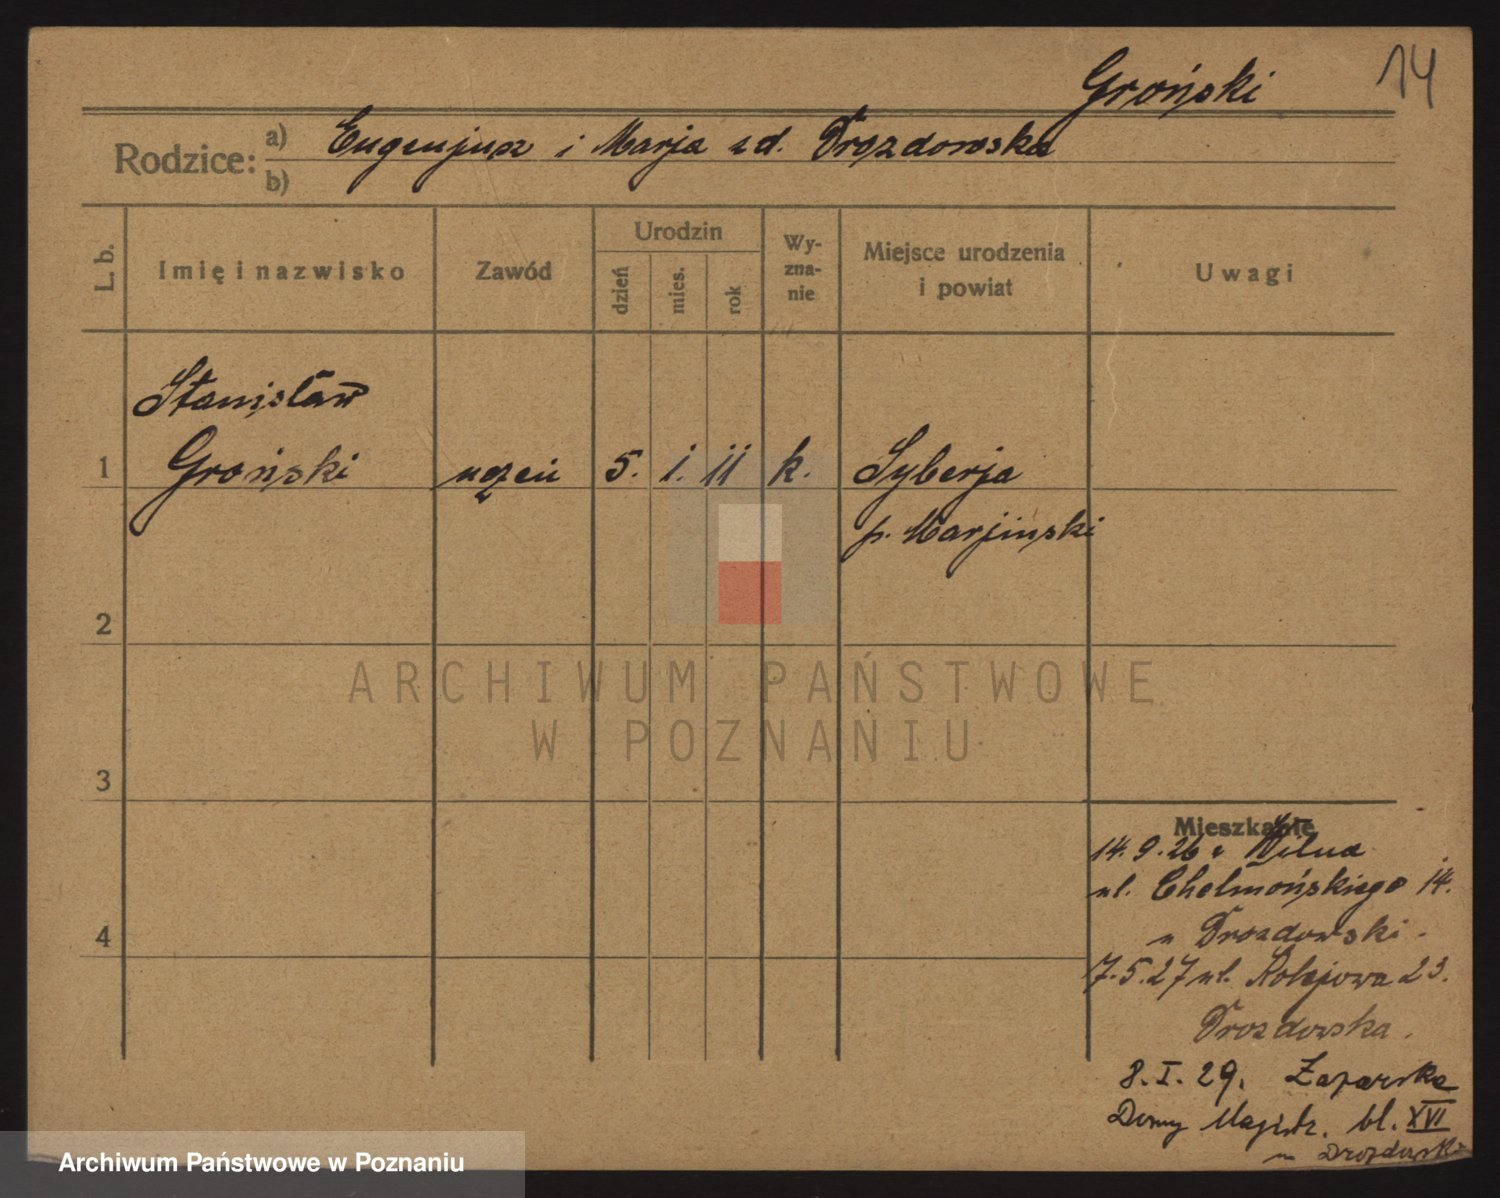 14
Groński
Rodzice: a) Eugenjusz i Marja zd. Drozdowska
b)
L. b.
Imię i nazwisko
Zawód
Urodzin
dzień
mies.
rok
Wy-
zna-
nie
Miejsce urodzenia
i powiat
Uwagi
Stanisław
1 Groński uczeń 5. 1. 11 k. Syberja
p. Marjinski
2
ARCHIWUM PAŃSTWOWE
W POZNANIU
3
Mieszkanie
14.9.26 z Wilna
ul. Chełmońskiego 14.
4
u Drozdowski.
7.5.27 ul. Kolejowa 23.
Drozdowska.
8.I.29. Zagorska
Domy Magistr. bl. XVI
u Drozdowski
Archiwum Państwowe w Poznaniu